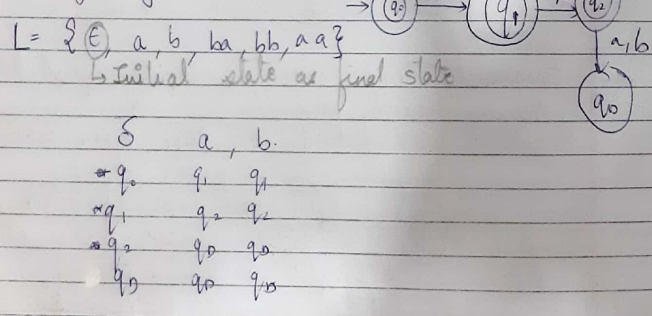 q₀ q₁ q₂
L = { ϵ, a, b, ba, bb, aa }
a,b
↳ Initial state as final state
q_D
δ a , b.
*q₀ q₁ q₁
*q₁ q₂ q₂
*q₂ q_D q_D
q_D q_D q_D